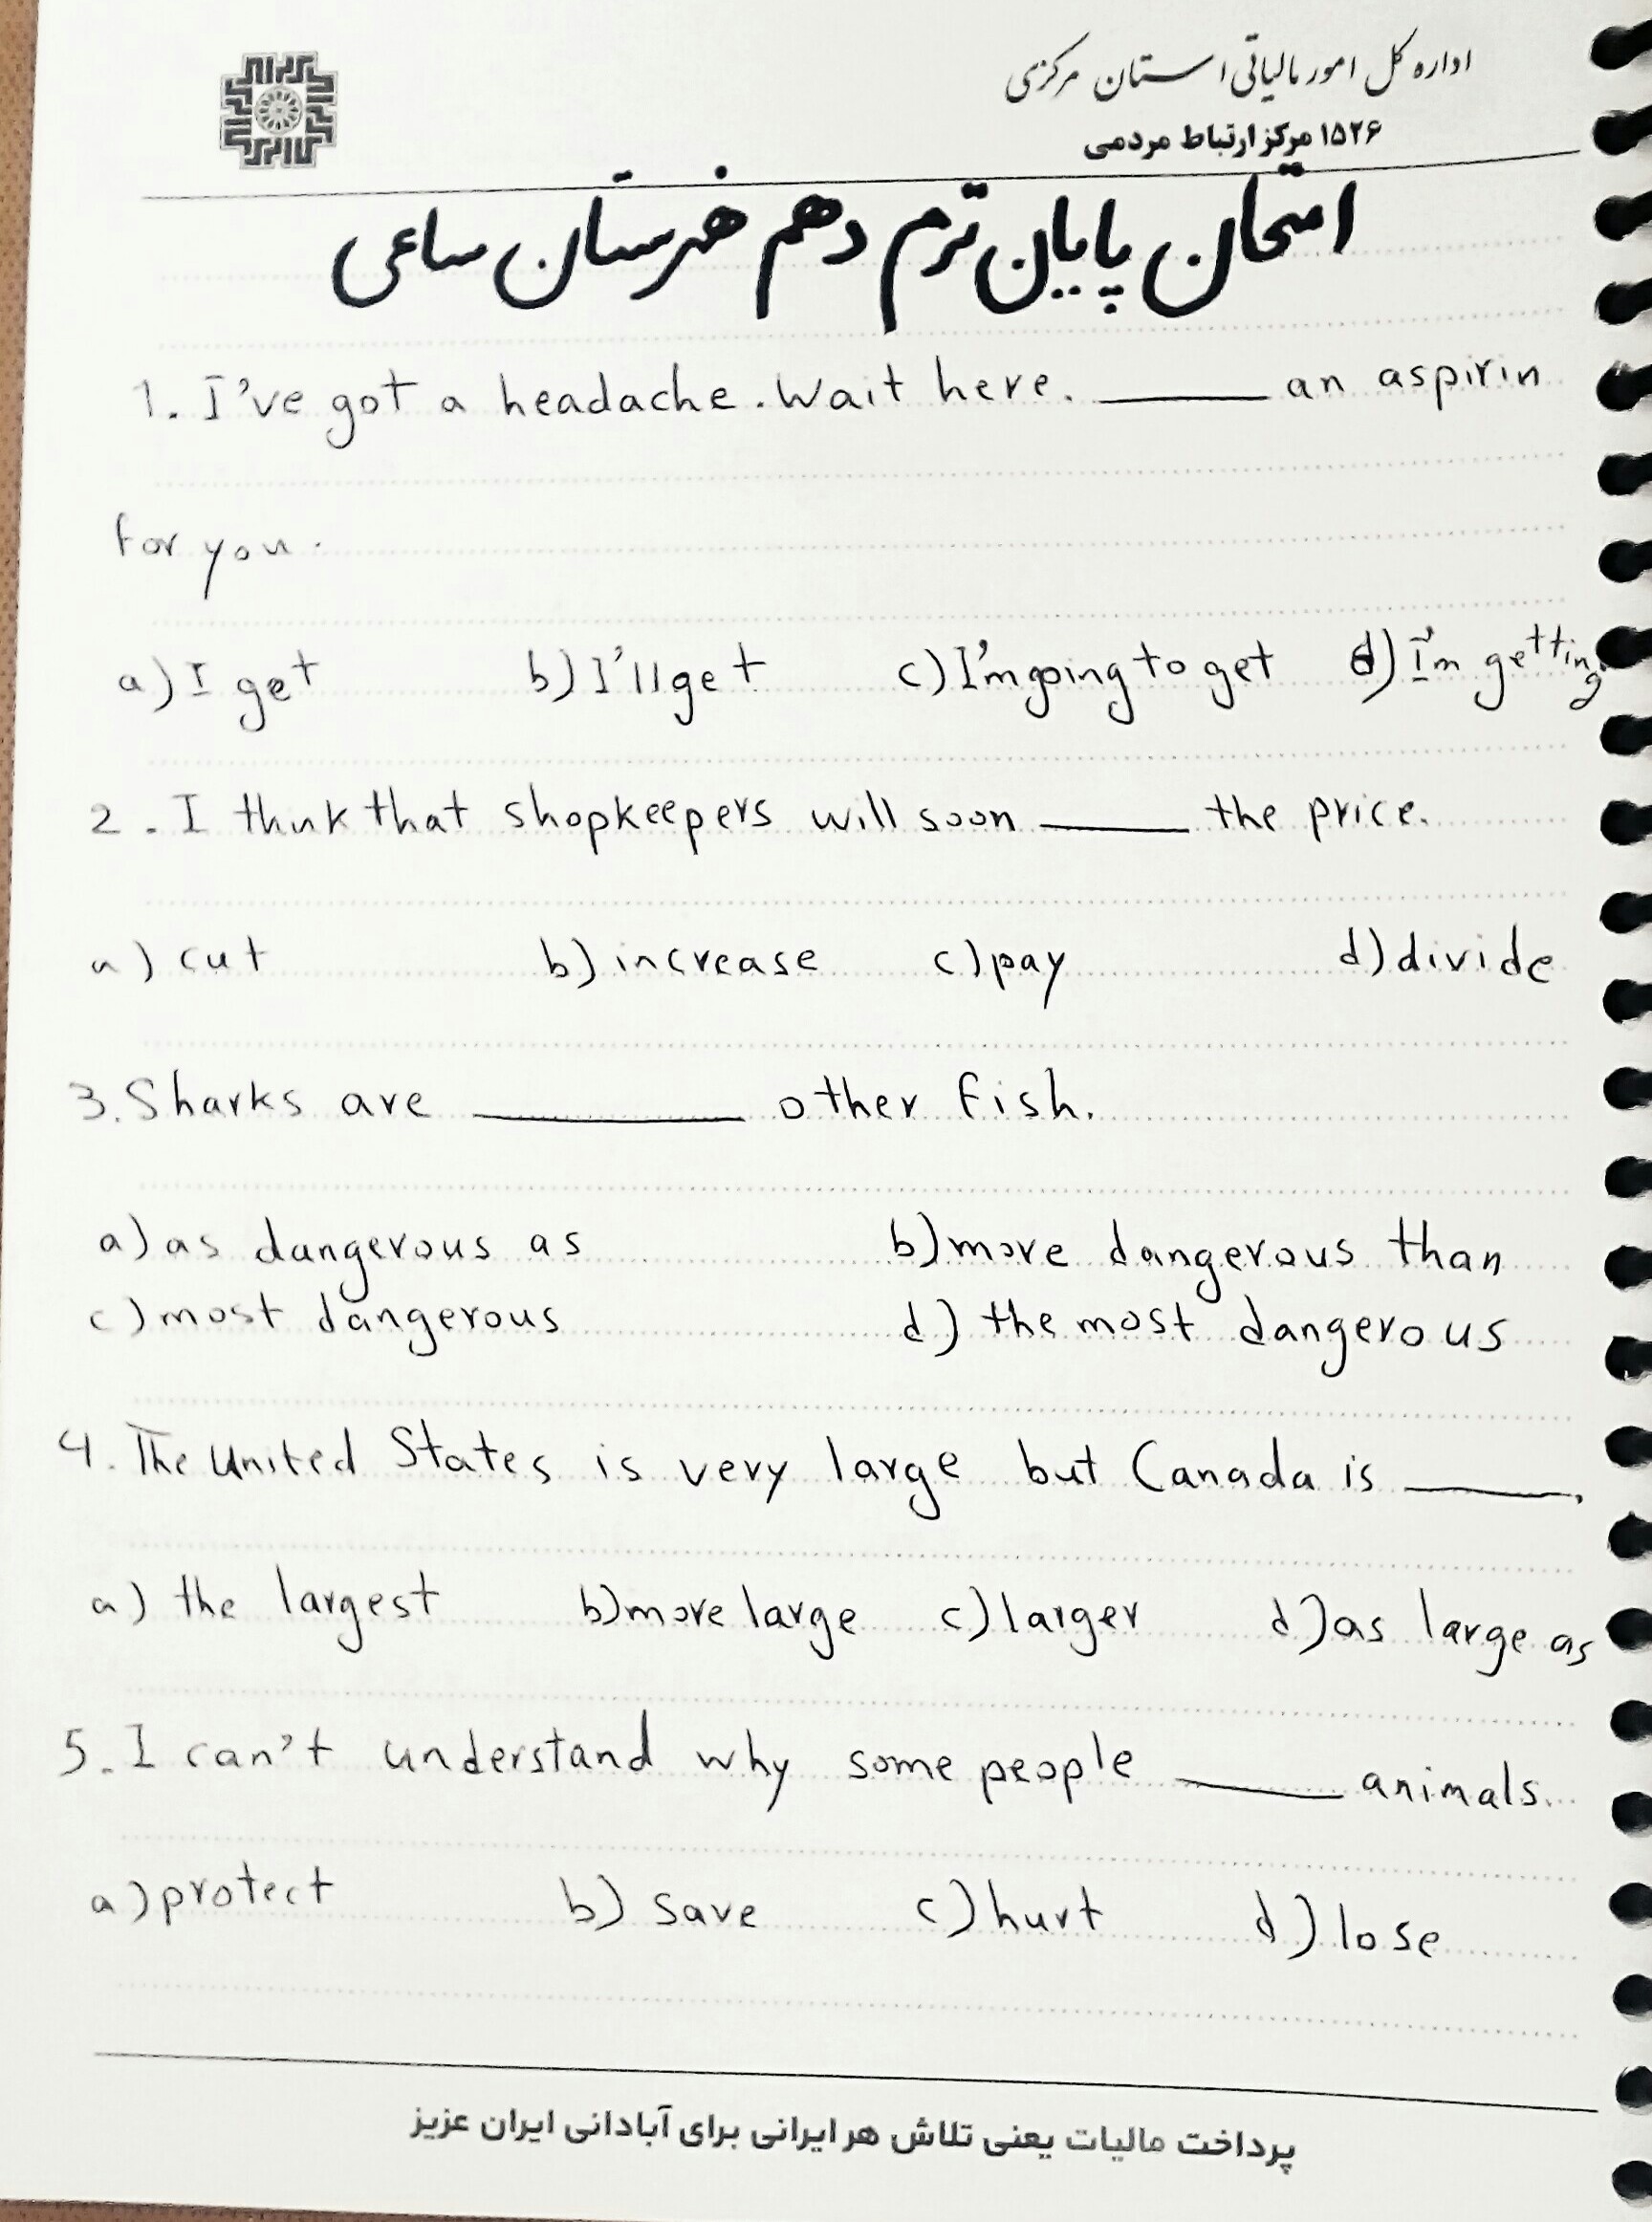 اداره کل امور مالیاتی استان مرکزی
۱۵۲۶ مرکز ارتباط مردمی
امتحان پایان ترم دهم هنرستان ساعی
1. I've got a headache. Wait here. ______ an aspirin
for you.
a) I get b) I'll get c) I'm going to get d) I'm getting
2. I think that shopkeepers will soon ______ the price.
a) cut b) increase c) pay d) divide
3. Sharks are ______ other fish.
a) as dangerous as b) more dangerous than
c) most dangerous d) the most dangerous
4. The United States is very large but Canada is ______.
a) the largest b) more large c) larger d) as large as
5. I can't understand why some people ______ animals.
a) protect b) save c) hurt d) lose
پرداخت مالیات یعنی تلاش هر ایرانی برای آبادانی ایران عزیز